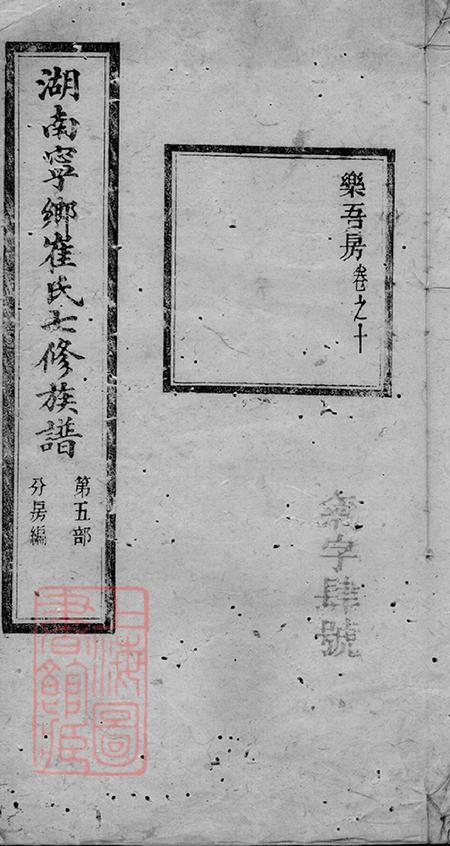 樂吾房卷之十
湖南寧鄉崔氏七修族譜
第五部
分房編
字肆號
上海圖
書館藏